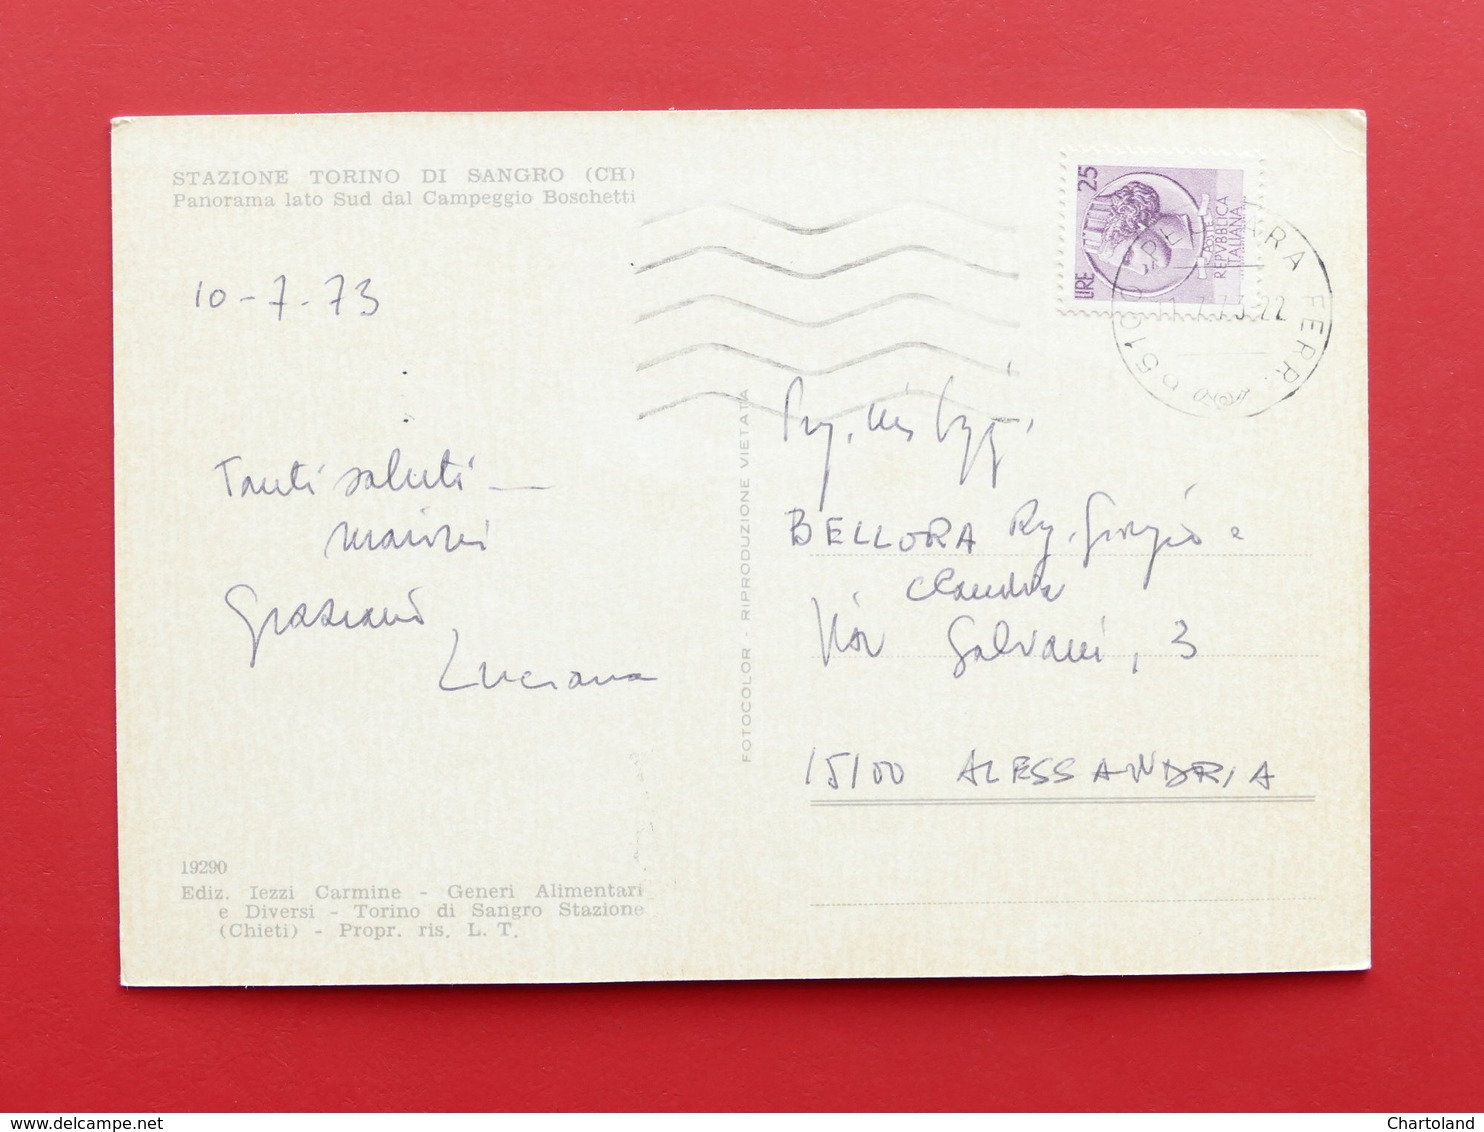 STAZIONE TORINO DI SANGRO (CH)
Panorama lato Sud dal Campeggio Boschetti
10-7-73
Tanti saluti
Graziano
Luciana
19290
Ediz. Iezzi Carmine - Generi Alimentari
e Diversi - Torino di Sangro Stazione
(Chieti) - Propr. ris. L. T.
FOTOCOLOR - RIPRODUZIONE VIETATA
LIRE 25
POSTE
REPVBBLICA
ITALIANA
65100 PESCARA FERR.
11.7.73.22
BELLORA Rg. Giorgio e
Claudia
Via Galvani, 3
15100 ALESSANDRIA
www.delcampe.net
Chartoland